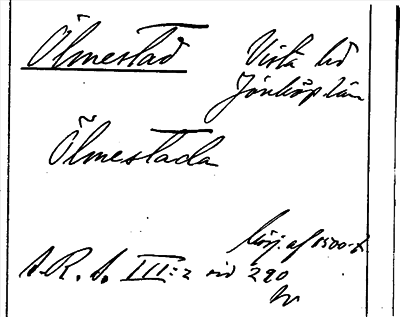 Ölmestad
Vista hd
Jönköp län
Ölmestada
börj. af 1500-t.
S.R.A. III:2 sid 290